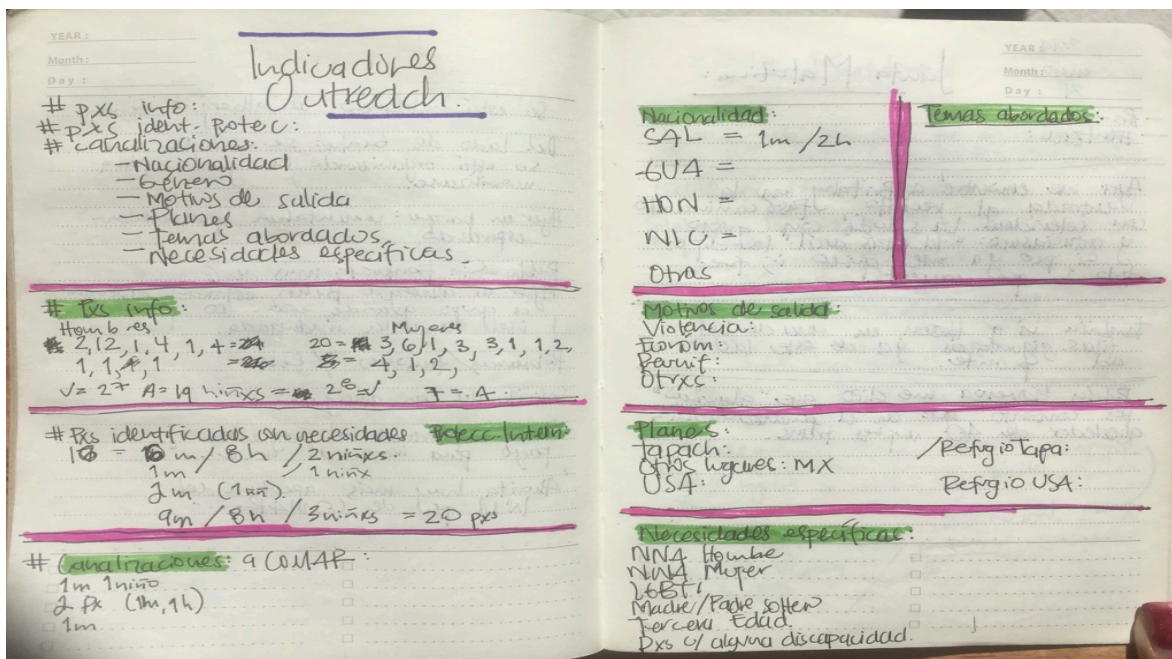 YEAR :
Month:
Day :
Indicadores
Outreach.
# pxs info:
# pxs ident. Protec:
# canalizaciones:
- Nacionalidad
- Género
- Motivos de salida
- Planes
- Temas abordados,
- Necesidades específicas.
# Pxs info:
Hombres Mujeres
2, 12, 1, 4, 1, 4 = 20 = 3, 6, 1, 3, 3, 1, 1, 2,
1, 1, 1 = 4, 1, 2,
√= 27 A= 19 niñxs = 28 = √ 7 = A
# Pxs identificadas con necesidades Protecc. Intern
m / 8h / 2 niñxs.
1m / 1 niñx
2m
9m / 8h / 3 niñxs = 20 pxs
# Canalizaciones: a COMAR:
1m 1 niño
2 px (1m, 1h)
1m
YEAR :
Month:
Day :
Nacionalidad: Temas abordados:
SAL = 1m / 2h
-GUA =
HON =
NIC =
Otras
Motivos de salida:
Violencia:
Económ:
Reunif:
Otrxs:
Planes:
Tapach: /Refugio Tapa:
Otros lugares: MX
USA: Refugio USA:
Necesidades específicas:
NNA Hombre
NNA Mujer
LGBTI
Madre/Padre solter
Tercera Edad.
Pxs c/ alguna discapacidad.